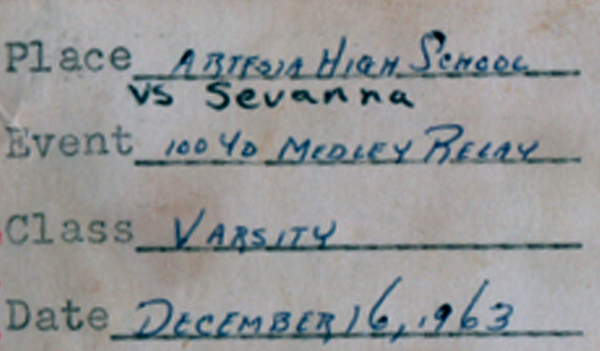 Place ARTESIA HIGH SCHOOL
vs Sevanna
Event 100 YD MEDLEY RELAY
Class VARSITY
Date DECEMBER 16, 1963